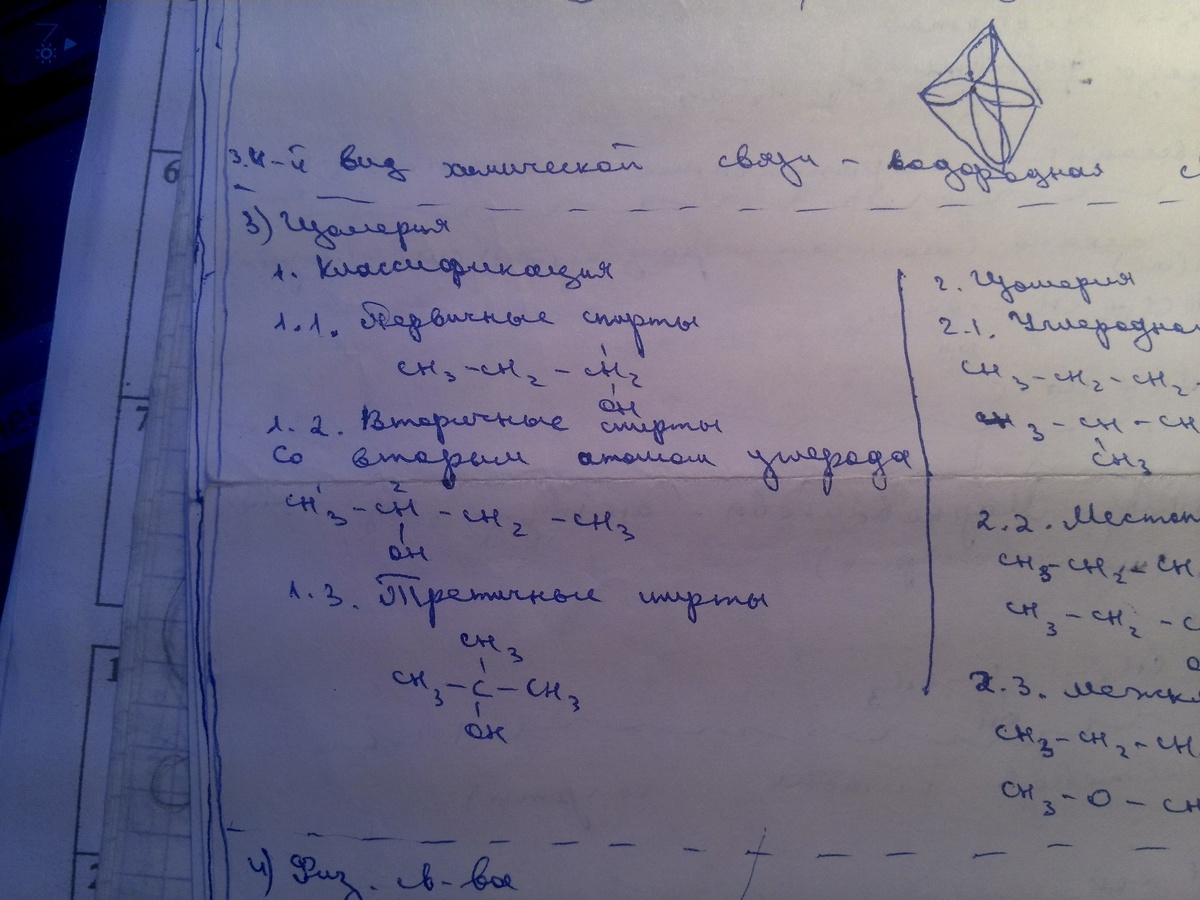 3.4-й вид химической связи - водородная с
3) Изомерия
1. Классификация
1.1. Первичные спирты
CH3-CH2-CH2
OH
1.2. Вторичные спирты
Со вторым атомом углерода
1 2
CH3-CH-CH2-CH3
OH
1.3. Третичные спирты
CH3
CH3-C-CH3
OH
2. Изомерия
2.1. Углеродная
CH3-CH2-CH2-
CH3-CH-CH
CH3
2.2. Местоп
CH3-CH2-CH
CH3-CH2-C
2.3. Межкл
CH3-CH2-CH
CH3-O-CH
4) Физ. св-ва
6
7
1
2